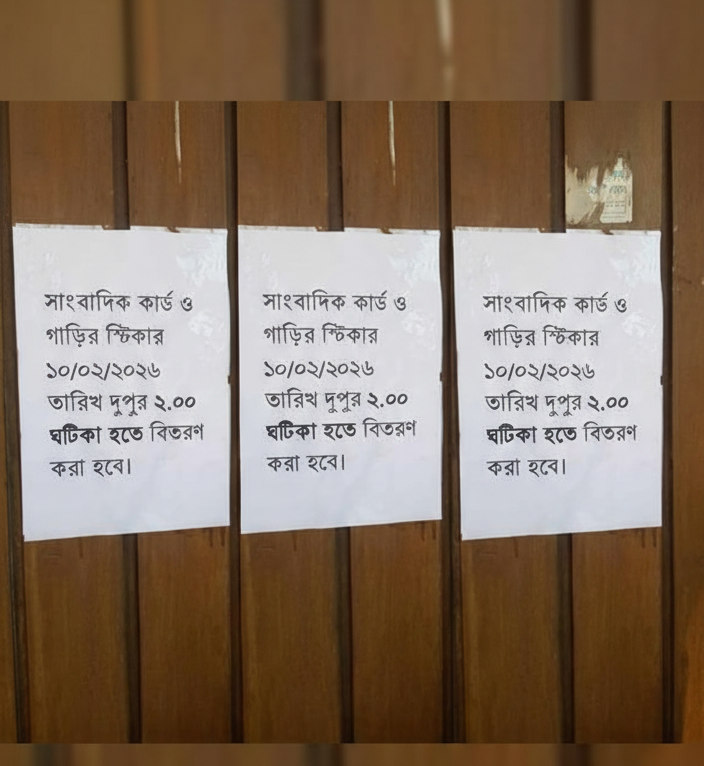 সাংবাদিক কার্ড ও
গাড়ির স্টিকার
১০/০২/২০২৬
তারিখ দুপুর ২.০০
ঘটিকা হতে বিতরণ
করা হবে।
সাংবাদিক কার্ড ও
গাড়ির স্টিকার
১০/০২/২০২৬
তারিখ দুপুর ২.০০
ঘটিকা হতে বিতরণ
করা হবে।
সাংবাদিক কার্ড ও
গাড়ির স্টিকার
১০/০২/২০২৬
তারিখ দুপুর ২.০০
ঘটিকা হতে বিতরণ
করা হবে।